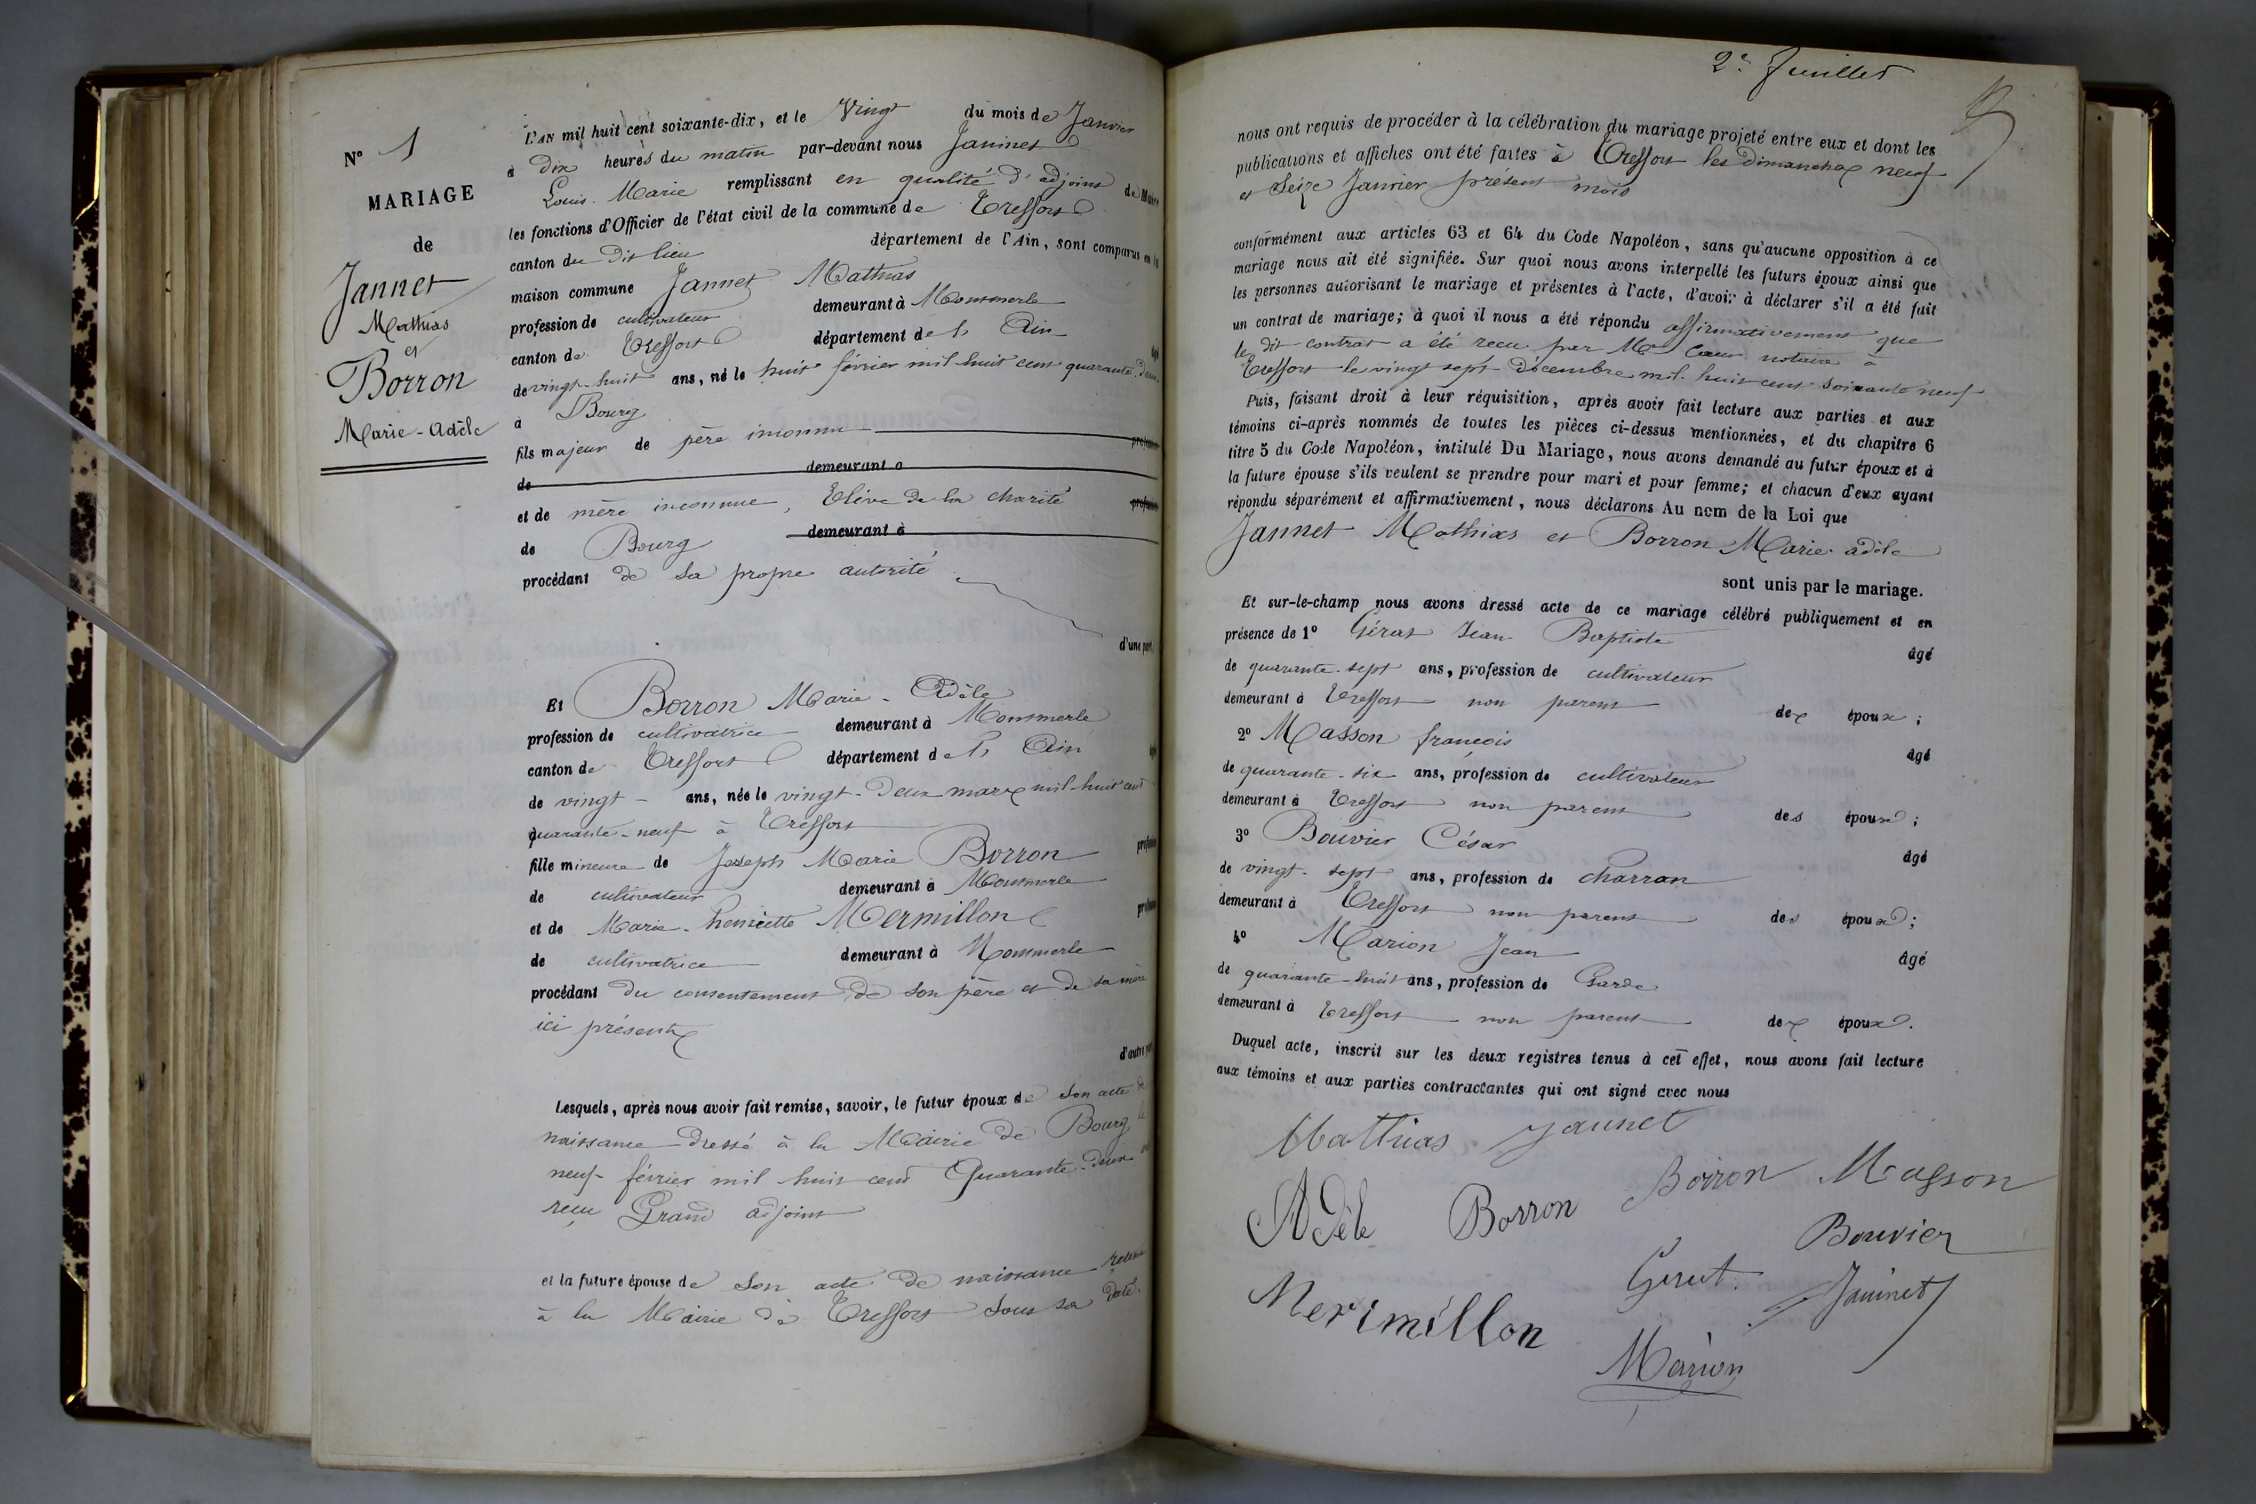 N° 1
MARIAGE
de
Jannet
Mathias
et
Borron
Marie-Adèle
L'AN mil huit cent soixante-dix, et le Vingt du mois de Janvier
à dix heures du matin par-devant nous Janinet
Louis Marie remplissant en qualité d'adjoint de Maire
les fonctions d'Officier de l'état civil de la commune de Treffort
canton du dit lieu département de l'Ain, sont comparus en la
maison commune Jannet Mathias
profession de cultivateur demeurant à Montmerle
canton de Treffort département de l'Ain âgé
de vingt-huit ans, né le huit février mil huit cent quarante-deux
à Bourg
fils majeur de père inconnu profession
de demeurant à
et de mère inconnue, Elève de la charité profession
de Bourg demeurant à
procédant de sa propre autorité
d'une part.
Et Borron Marie-Adèle
profession de cultivatrice demeurant à Montmerle
canton de Treffort département de l'Ain âgé
de vingt ans, née le vingt-deux mars mil huit cent
quarante-neuf à Treffort
fille mineure de Joseph Marie Borron profession
de cultivateur demeurant à Montmerle
et de Marie-henriette Mermillon profession
de cultivatrice demeurant à Montmerle
procédant du consentement de son père et de sa mère
ici présents
d'autre part
Lesquels, après nous avoir fait remise, savoir, le futur époux de son acte de
naissance dressé à la Mairie de Bourg le
neuf février mil huit cent Quarante-deux
reçu Grand adjoint
et la future épouse de son acte de naissance
à la Mairie de Treffort sous sa date.
2e. feuillet
nous ont requis de procéder à la célébration du mariage projeté entre eux et dont les
publications et affiches ont été faites à Treffort les dimanches neuf
et Seize Janvier présent mois
conformément aux articles 63 et 64 du Code Napoléon, sans qu'aucune opposition à ce
mariage nous ait été signifiée. Sur quoi nous avons interpellé les futurs époux ainsi que
les personnes autorisant le mariage et présentes à l'acte, d'avoir à déclarer s'il a été fait
un contrat de mariage; à quoi il nous a été répondu affirmativement que
le dit contrat a été reçu par Me notaire à
Treffort le vingt sept Décembre mil huit cent soixante neuf
Puis, faisant droit à leur réquisition, après avoir fait lecture aux parties et aux
témoins ci-après nommés de toutes les pièces ci-dessus mentionnées, et du chapitre 6
titre 5 du Code Napoléon, intitulé Du Mariage, nous avons demandé au futur époux et à
la future épouse s'ils veulent se prendre pour mari et pour femme; et chacun d'eux ayant
répondu séparément et affirmativement, nous déclarons Au nom de la Loi que
Jannet Mathias et Borron Marie-adèle
sont unis par le mariage.
Et sur-le-champ nous avons dressé acte de ce mariage célébré publiquement et en
présence de 1° Gérat Jean Baptiste âgé
de quarante-sept ans, profession de cultivateur
demeurant à Treffort non parent des époux;
2° Masson françois âgé
de quarante-six ans, profession de cultivateur
demeurant à Treffort non parent des époux;
3° Bouvier César âgé
de vingt-sept ans, profession de charron
demeurant à Treffort non parent des époux;
4° Marion Jean âgé
de quarante-huit ans, profession de Garde
demeurant à Treffort non parent des époux.
Duquel acte, inscrit sur les deux registres tenus à cet effet, nous avons fait lecture
aux témoins et aux parties contractantes qui ont signé avec nous
Mathias Jannet
Adèle Borron Borron Masson
Bouvier
Gerat Janinet
Merimillon
Marion